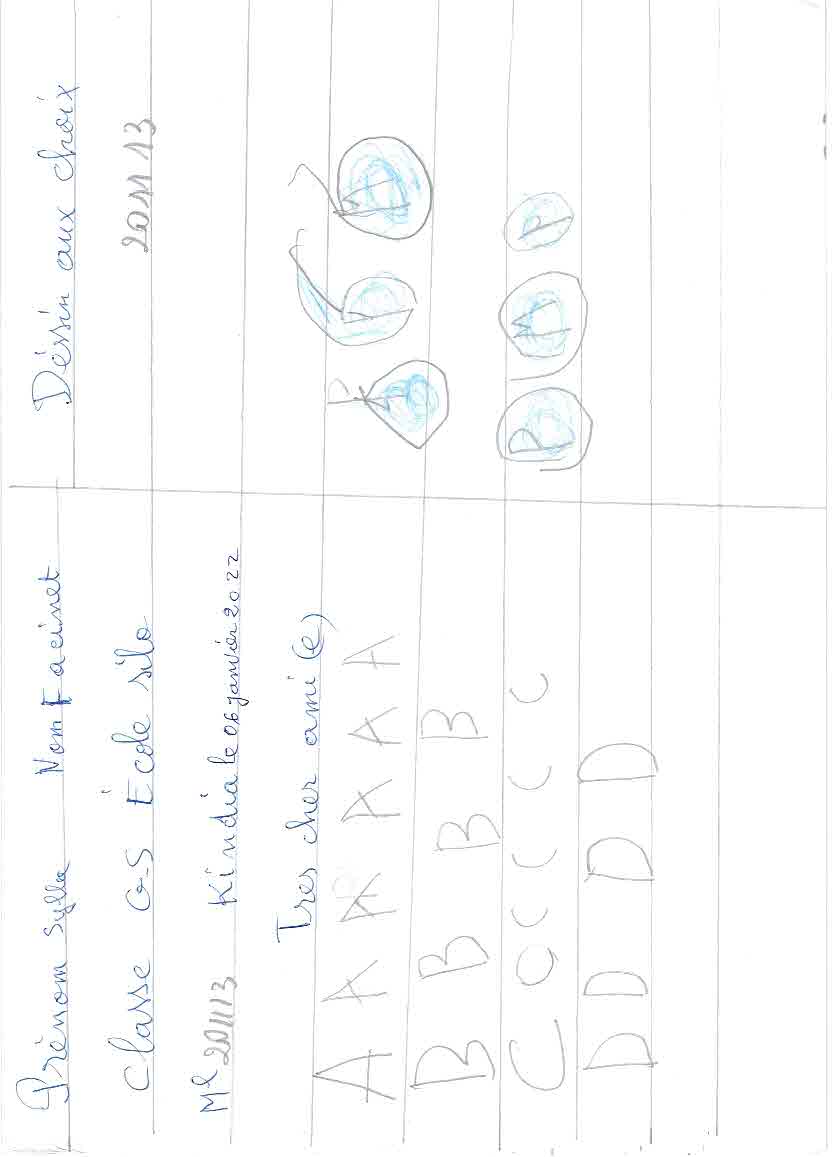 Prénom Sylla Nom Facinet
Classe G-S École silo
Ml 201113 Kindia le 06 janvier 2022
Tres cher ami (e)
A A A A A A
B B B B
C C C C C C
D D D D
Déssin aux choix
201113